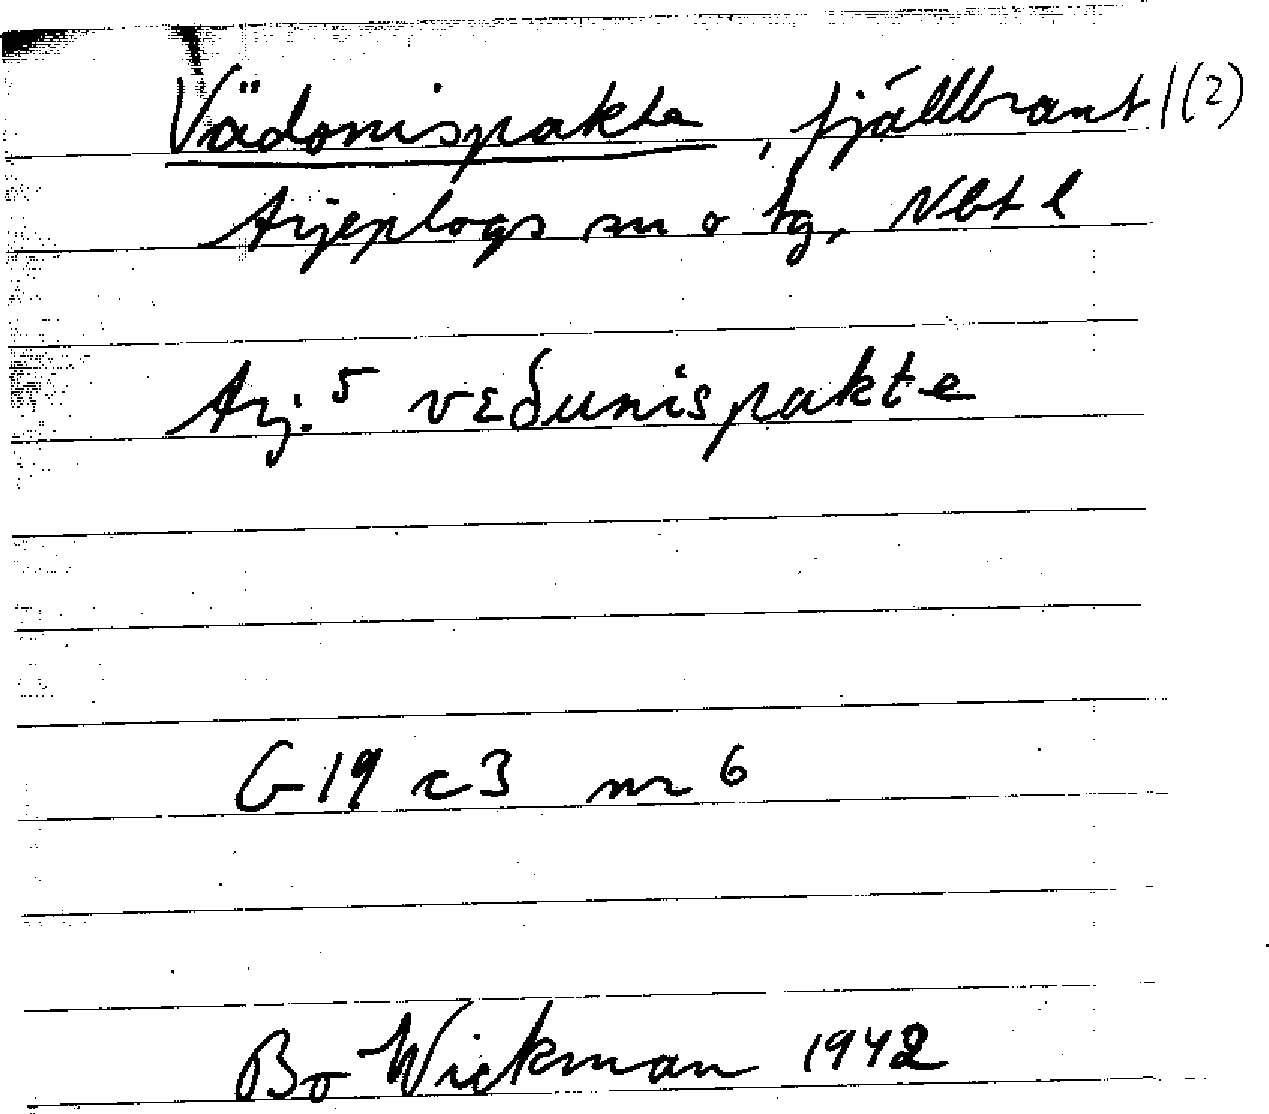 Vädonispakte, fjällbrant 1(2)
Arjeplogs sn o tg, Nbt l
Arj.5 vεδunispakte
G 19 c 3 nr 6
Bo Wickman 1942